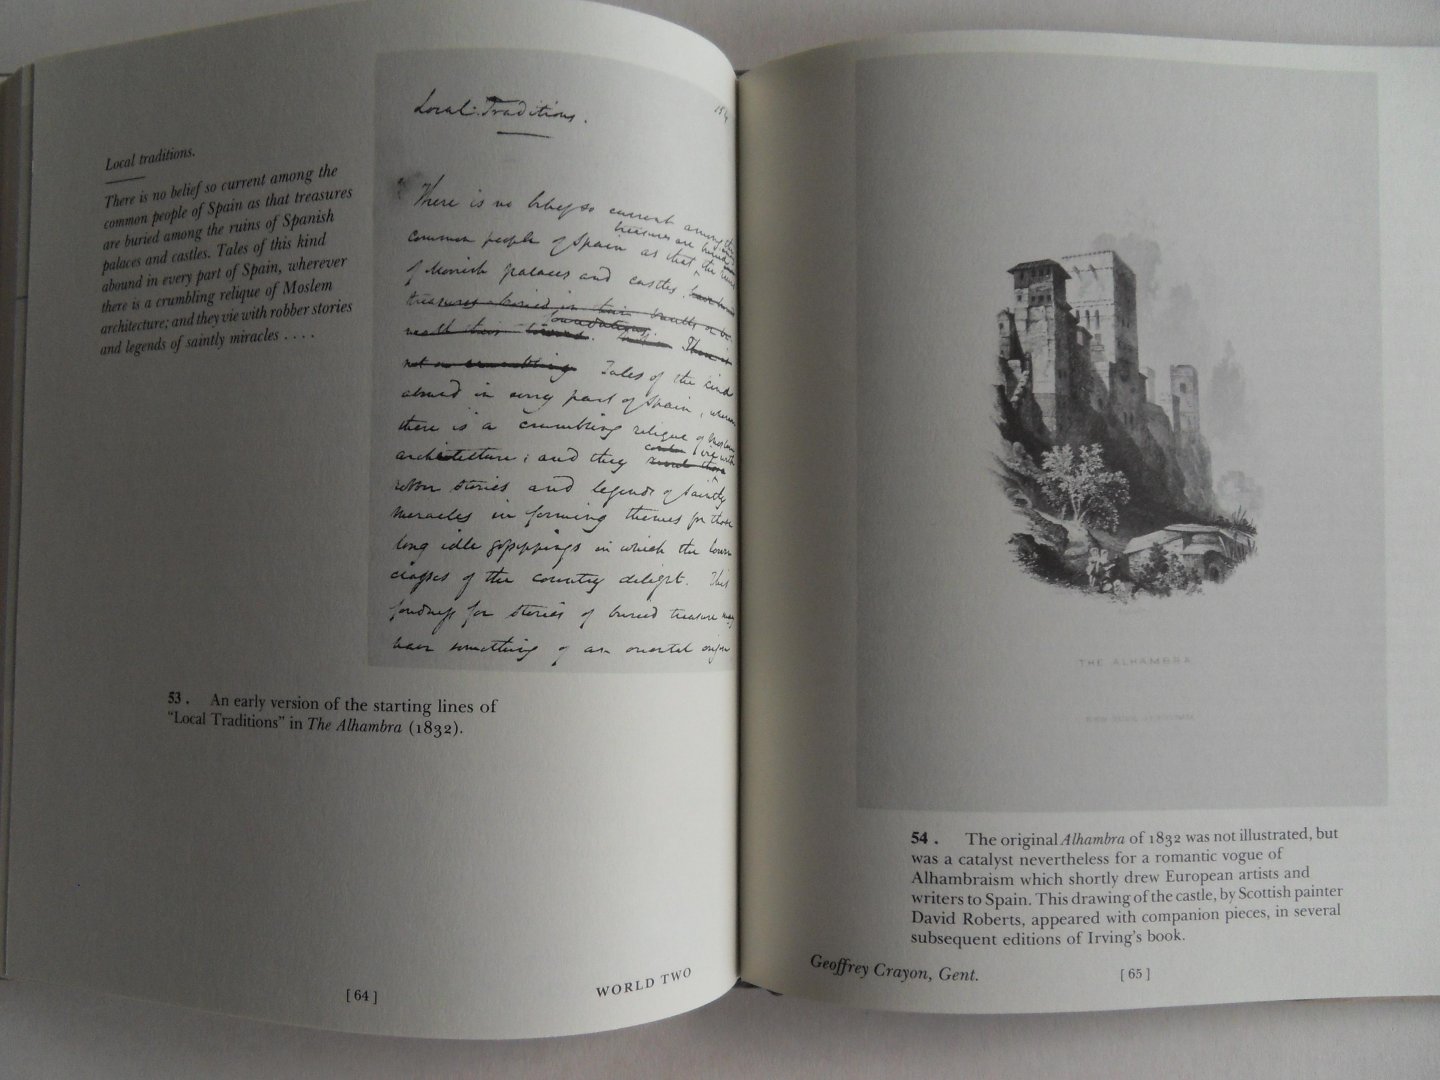 Local traditions.
There is no belief so current among the
common people of Spain as that treasures
are buried among the ruins of Spanish
palaces and castles. Tales of this kind
abound in every part of Spain, wherever
there is a crumbling relique of Moslem
architecture; and they vie with robber stories
and legends of saintly miracles . . . .
Local Traditions.
There is no belief so current among the
treasures are buried
common people of Spain as that the
of Morish palaces and castles.
treasures buried in their vaults or be
neath their towers.
foundations.
Tales of the kind
abound in every part of Spain, wherever
there is a crumbling relique of Moslem
architecture; and they
vie with
robber stories and legends of saintly
miracles in forming themes for those
long idle gossippings in which the lower
classes of the country delight. This
fondness for stories of buried treasure may
have something of an oriental origin
53. An early version of the starting lines of
“Local Traditions” in The Alhambra (1832).
[ 64 ]
WORLD TWO
THE ALHAMBRA
54. The original Alhambra of 1832 was not illustrated, but
was a catalyst nevertheless for a romantic vogue of
Alhambraism which shortly drew European artists and
writers to Spain. This drawing of the castle, by Scottish painter
David Roberts, appeared with companion pieces, in several
subsequent editions of Irving's book.
Geoffrey Crayon, Gent.
[ 65 ]